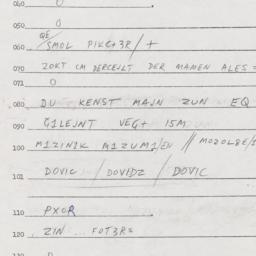 040 0
050 0
QE/
060 SMOL PIKG+3R/ +
070 ZOKT CM DERCEJLT DER MAMEN ALES =
071 0
080 DU KENST MAJN ZUN EQ
090 G1LEJNT VEG+ 15M
100 M1ZIN1K M1ZUM1/EN // MOZOL8E/1
101 DOVIC / DOVIDZ / DOVIC
110 PXOR
120 ZIN ... FOT3RS